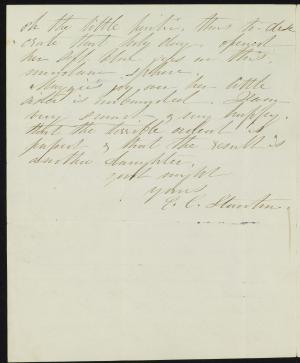 oh the little sinner, thus to dese
crate that holy day, opened
her soft blue eyes on this
mundane sphere.
Maggie's joy over her little
sister is unbounded. I am
very smart & very happy,
that the terrible ordeal is
passed & that the result is
another daughter.
good night
yours
E. C. Stanton.